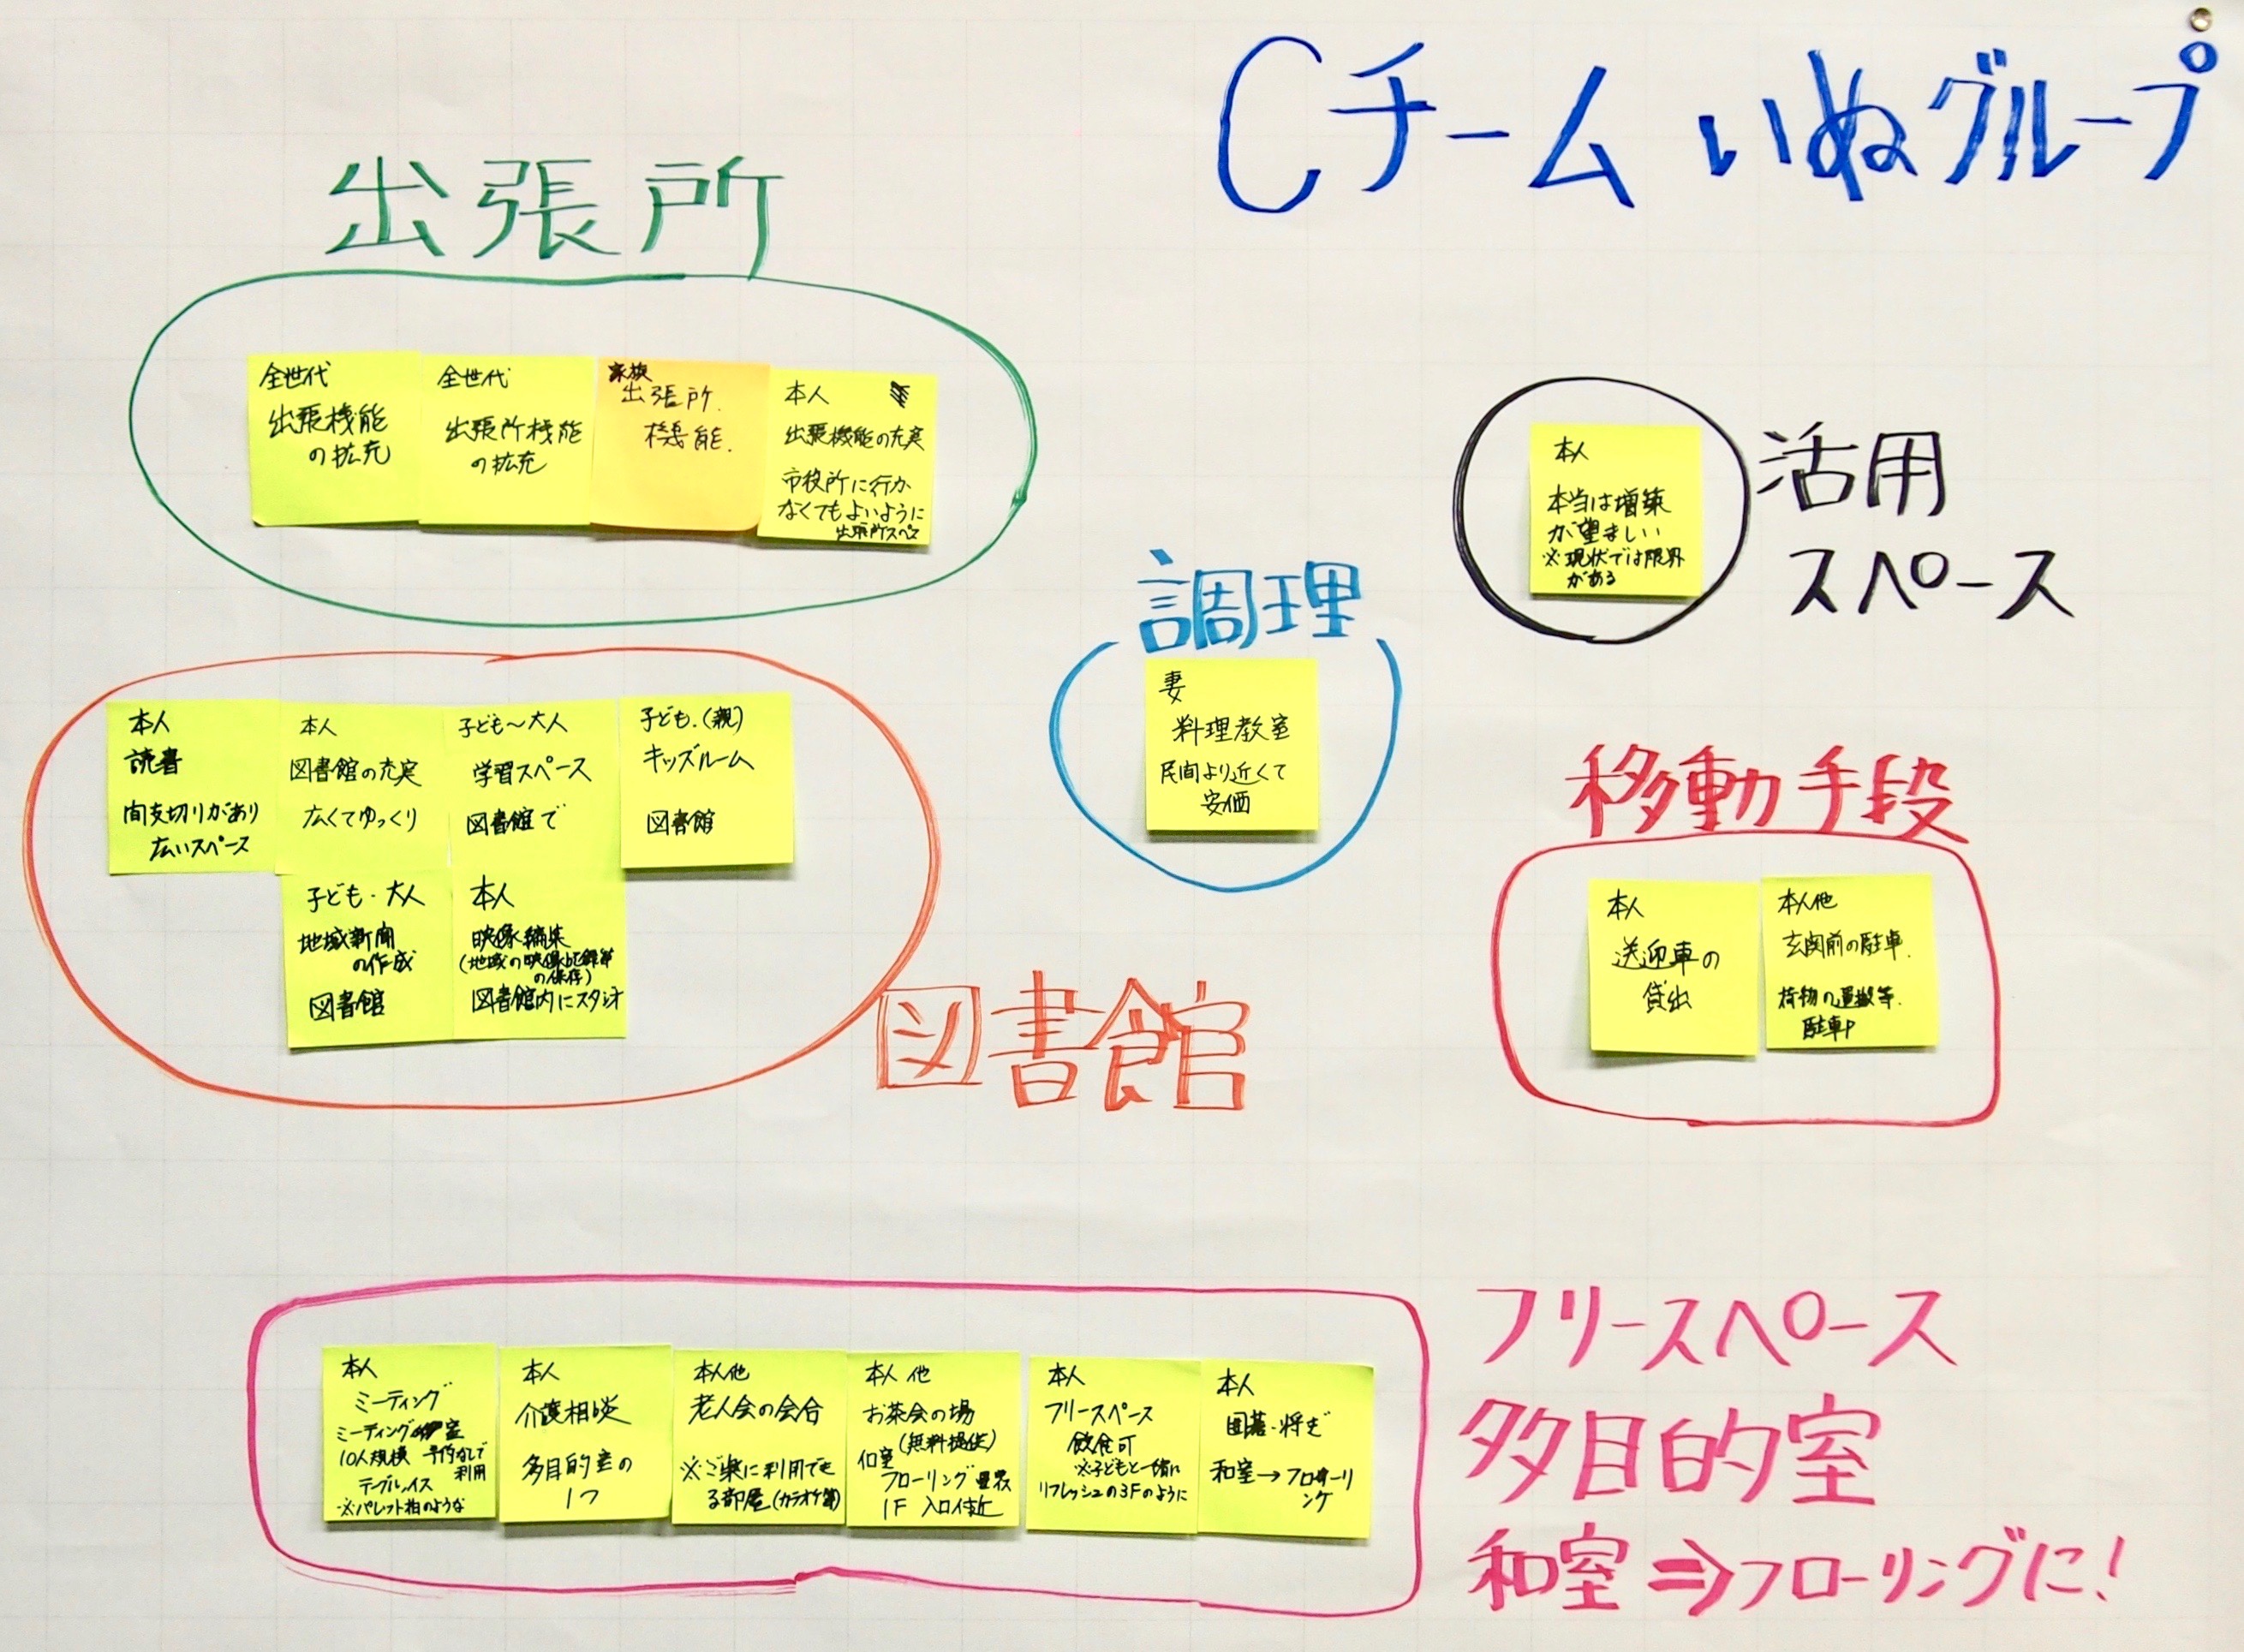 Cチーム いぬグループ
出張所
全世代
出張機能
の拡充
全世代
出張所機能
の拡充
家族
出張所.
機能.
本人
出張機能の充実
市役所に行か
なくてもよいように
出張所スペース
活用
スペース
本人
本当は増築
が望ましい
※現状では限界
がある
調理
妻
料理教室
民間より近くて
安価
移動手段
本人
送迎車の
貸出
本人他
玄関前の駐車.
荷物の運搬等.
駐車
図書館
本人
読書
間支切りがあり
広いスペース
本人
図書館の充実
広くてゆっくり
子ども〜大人
学習スペース
図書館で
子ども.(親)
キッズルーム
図書館
子ども・大人
地域新聞
の作成
図書館
本人
映像編集
(地域の映像記録等
の保存)
図書館内にスタジオ
フリースペース
多目的室
和室⇒フローリングに!
本人
ミーティング
ミーティング室
10人規模 予約なしで
利用
テーブル,イス
※パレット柏のような
本人
介護相談
多目的室の
1つ
本人他
老人会の会合
※ご楽に利用でき
る部屋(カラオケ等)
本人他
お茶会の場
(無料提供)
和室
フローリング
1F 入口付近
本人
フリースペース
飲食可
※子どもと一緒に
リフレッシュの3Fのように
本人
囲碁・将ぎ
和室→フローリ
ング